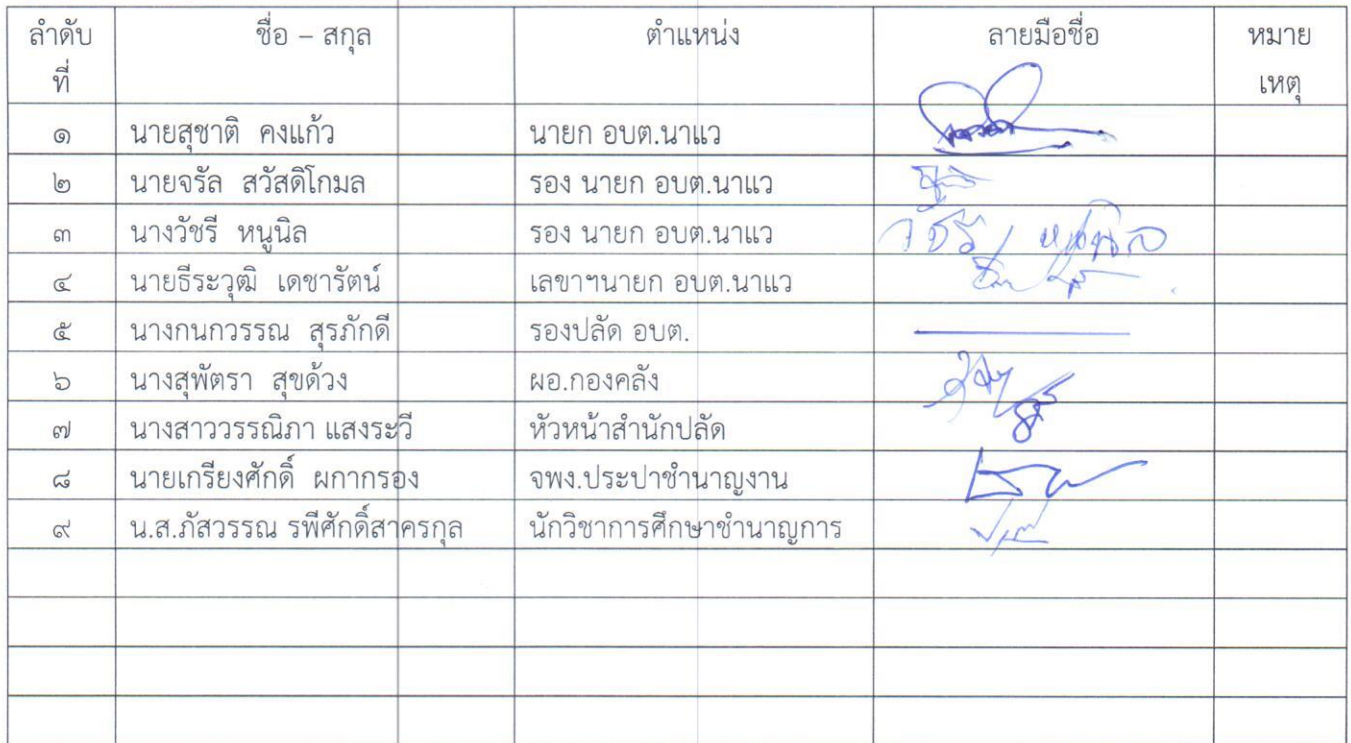 ลำดับที่ ชื่อ – สกุล ตำแหน่ง ลายมือชื่อ หมายเหตุ
๑ นายสุชาติ คงแก้ว นายก อบต.นาแว
๒ นายจรัล สวัสดิโกมล รอง นายก อบต.นาแว
๓ นางวัชรี หนูนิล รอง นายก อบต.นาแว วัชรี หนูนิล
๔ นายธีระวุฒิ เดชารัตน์ เลขาฯนายก อบต.นาแว
๕ นางกนกวรรณ สุรภักดี รองปลัด อบต.
๖ นางสุพัตรา สุขด้วง ผอ.กองคลัง
๗ นางสาววรรณิภา แสงระวี หัวหน้าสำนักปลัด
๘ นายเกรียงศักดิ์ ผกากรอง จพง.ประปาชำนาญงาน
๙ น.ส.ภัสวรรณ รพีศักดิ์สาครกุล นักวิชาการศึกษาชำนาญการ